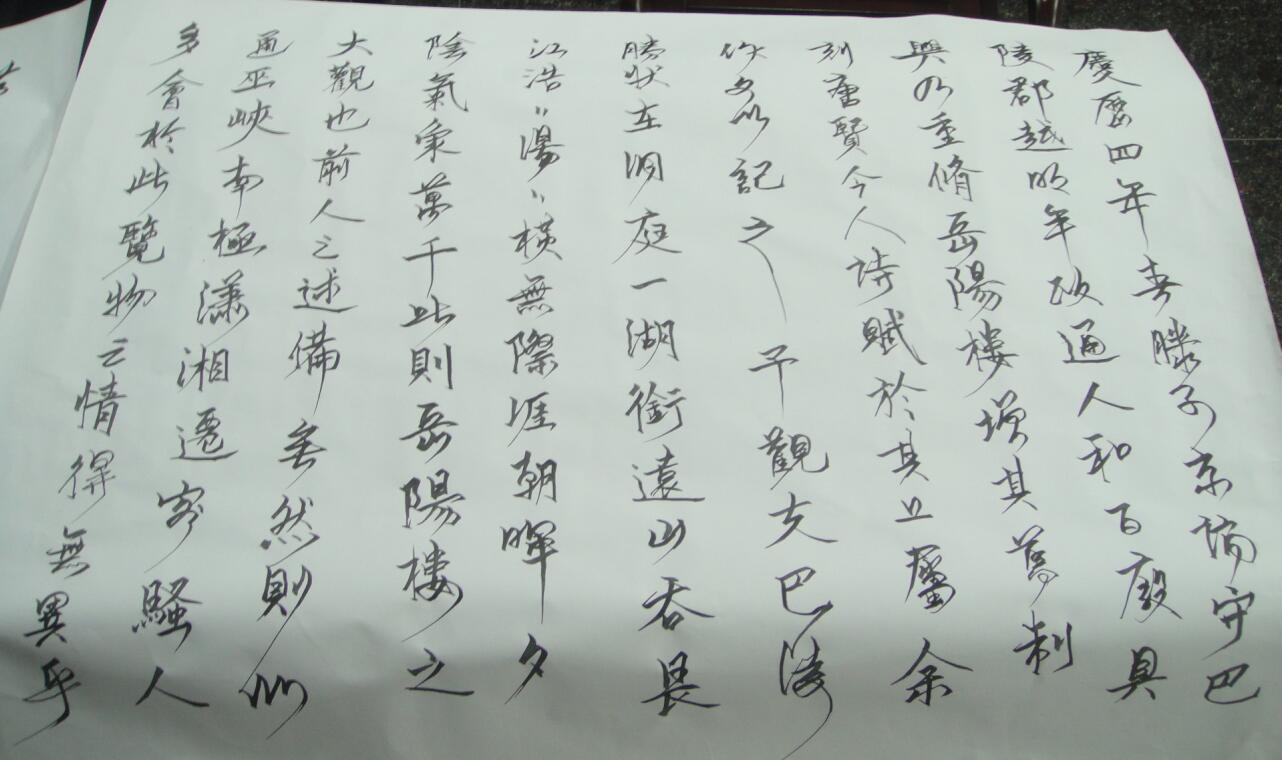 慶曆四年春滕子京謫守巴
陵郡越明年政通人和百廢具
興乃重脩岳陽樓增其舊制
刻唐賢今人詩賦於其上屬余
作文以記之
予觀夫巴陵
勝狀在洞庭一湖銜遠山吞長
江浩〃湯〃橫無際涯朝暉夕
陰氣象萬千此則岳陽樓之
大觀也前人之述備矣然則北
通巫峽南極瀟湘遷客騷人
多會於此覽物之情得無異乎